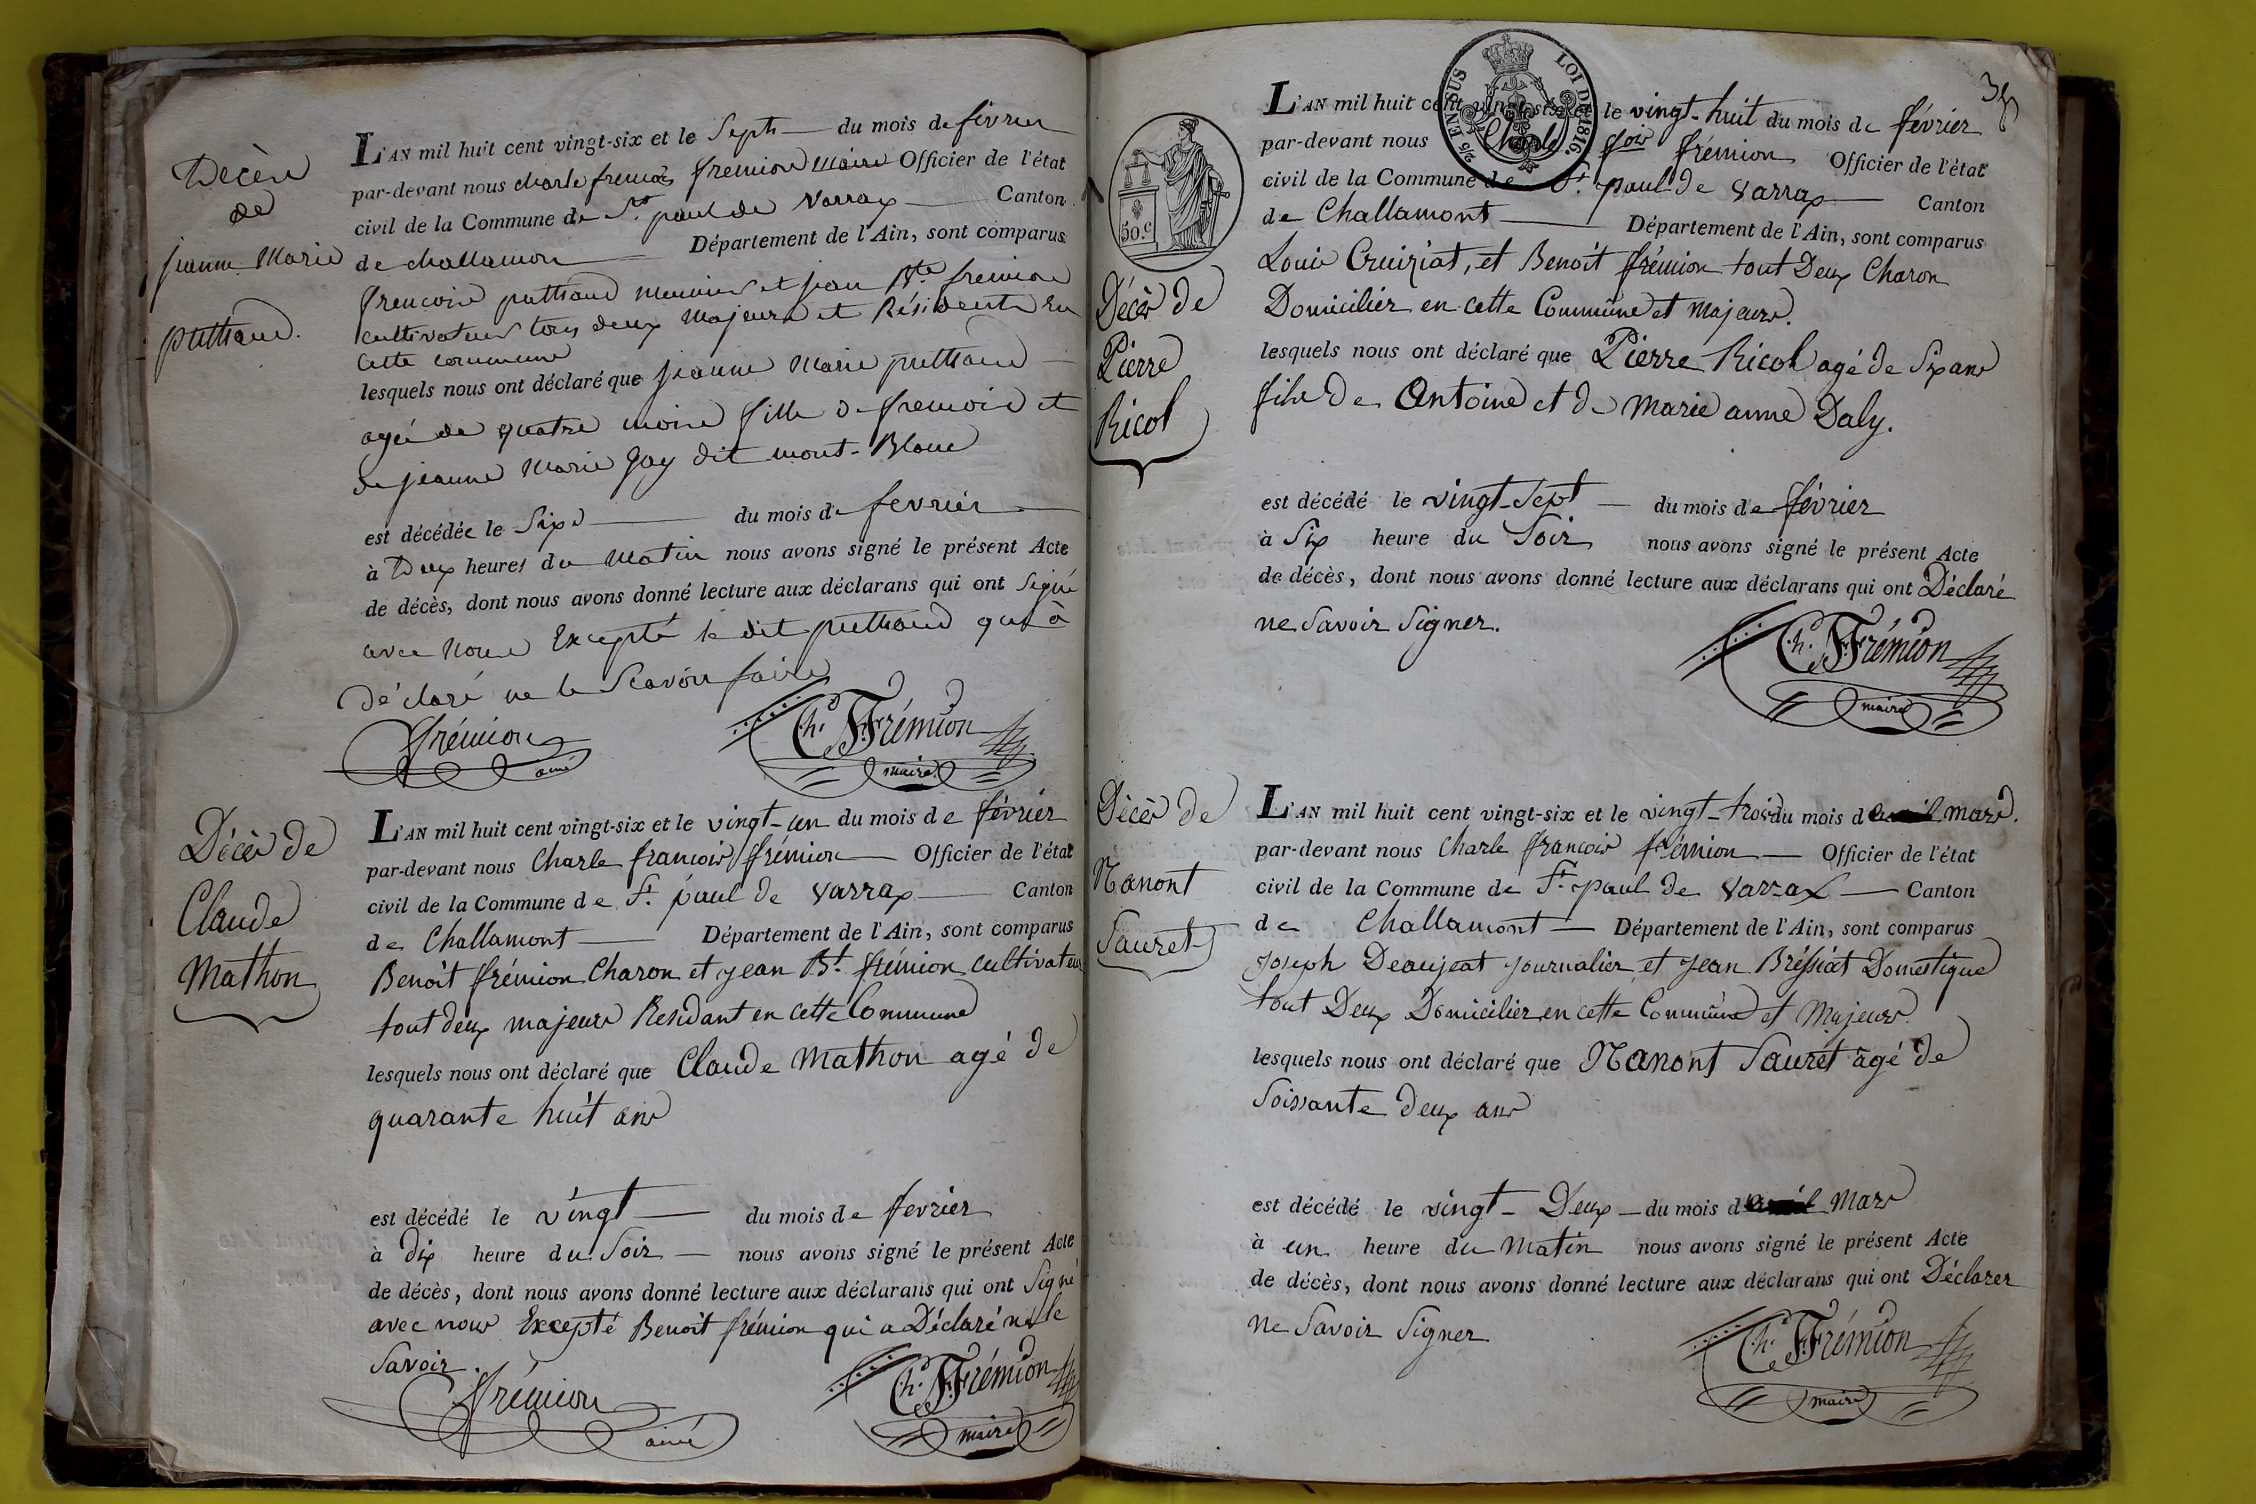 Décès
de
jeanne Marie
puthaud.
L'AN mil huit cent vingt-six et le Septe du mois de fevrier
par-devant nous charle francois fremion maire Officier de l'état
civil de la Commune de St paul de Varrax Canton
de challamon Département de l'Ain, sont comparus
francoise puthaud meunier et jean Bte fremion
cultivateur tous deux Majeurs et Résidents En
cette commune
lesquels nous ont déclaré que jeanne Marie puthaud
agée de quatre mois fille de francois et
de jeanne Marie Gay dit mont-Blanc
est décédée le Six du mois de fevrier
à Deux heures du Matin nous avons signé le présent Acte
de décès, dont nous avons donné lecture aux déclarans qui ont Signé
avec Nous Excepté le dit puthaud qui à
déclaré ne le Scavoir faire
frémion
ainé
Ch. F. Frémion
maire
Décès de
Claude
Mathon
L'AN mil huit cent vingt-six et le vingt-un du mois de février
par-devant nous Charle francois frémion Officier de l'état
civil de la Commune de St. paul de Varrax Canton
de Challamont Département de l'Ain, sont comparus
Benoît frémion Charon et jean Bt. frémion cultivateur
tout deux majeurs Residant en cette Commune
lesquels nous ont déclaré que Claude Mathon agé de
quarante huit ans
est décédé le vingt du mois de fevrier
à dix heure du Soir nous avons signé le présent Acte
de décès, dont nous avons donné lecture aux déclarans qui ont Signé
avec nous Excepté Benoit frémion qui a Déclaré ne le
Savoir.
frémion
ainé
Ch. F. Frémion
maire
EN SUS
LOI DE 1816.
50.c
Décès de
Pierre
Ricol
L'AN mil huit cent vingt-six et le vingt-huit du mois de février
par-devant nous Charle fois frémion Officier de l'état
civil de la Commune de St. paul de Varrax Canton
de Challamont Département de l'Ain, sont comparus
Louis Cruiziat, et Benoît frémion tout Deux Charon
Domicilier en cette Commune et Majeurs.
lesquels nous ont déclaré que Pierre Ricol agé de Six ans
fils de Antoine et de Marie anne Daly.
est décédé le vingt-Sept du mois de février
à Six heure du Soir nous avons signé le présent Acte
de décès, dont nous avons donné lecture aux déclarans qui ont Déclaré
ne Savoir Signer.
Ch. F. Frémion
maire
Décès de
Nanont
Sauret
L'AN mil huit cent vingt-six et le vingt-trois du mois d mars.
par-devant nous Charle francois frémion Officier de l'état
civil de la Commune de St. paul de Varrax Canton
de Challamont Département de l'Ain, sont comparus
Joseph Deaujeat journalier et Jean Bressiat Domestique
tout Deux Domicilier en cette Commune et Majeurs
lesquels nous ont déclaré que Nanont Sauret agé de
Soissante deux ans
est décédé le vingt-Deux du mois d Mars
à un heure du Matin nous avons signé le présent Acte
de décès, dont nous avons donné lecture aux déclarans qui ont Déclarer
ne Savoir Signer
Ch. F. Frémion
maire